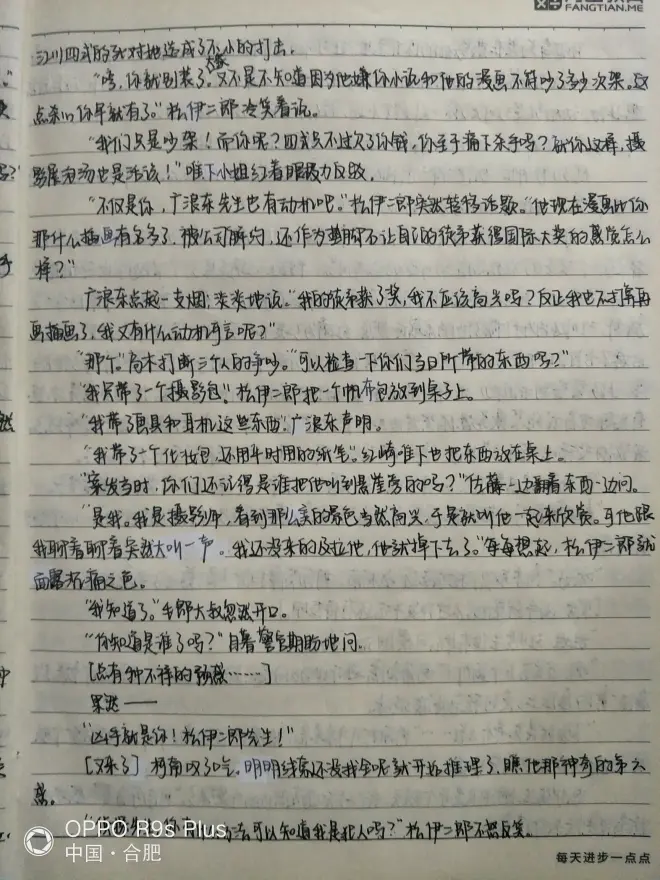 FANGTIAN.ME
江川四式的死对他造成了不小的打击。
"喂,你就别装了。大家又不是不知道因为他嫌你小说和他的漫画不符吵了多少次架。这
点杀心你早就有了。"松伊二郎冷笑着说。
"我们只是吵架!而你呢?四式只不过欠了你钱,你至于痛下杀手吗?就你这样,摄
影展泡汤也是活该!"唯下小姐红着眼极力反驳。
"不仅是你,广浪东先生也有动机吧。"松伊二郎突然转移话题。"他现在漫画比你
那什么插画有名多了,被公司解约,还作为垫脚石让自己的徒弟获得国际大奖的感觉怎么
样?"
广浪东点起一支烟,淡淡地说。"我的徒弟获了奖,我不应该高兴吗?反正我也不打算再
画插画了,我又有什么动机可言呢?"
"那个。"高木打断三个人的争吵。"可以检查一下你们当日所带的东西吗?"
"我只带了一个摄影包。"松伊二郎把一个帆布包放到桌子上。
"我带了画具和耳机这些东西。"广浪东声明。
"我带了个化妆包,还用平时用的纸笔。"红崎唯下也把东西放在桌上。
"案发当时,你们还记得是谁把他叫到悬崖旁的吗?"佐藤一边翻看东西一边问。
"是我。我是摄影师,看到那么美的景色当然高兴,于是就叫他一起来欣赏。可他跟
我聊着聊着突然大叫一声。我还没来的及拉他,他就掉下去了。"每每想起,松伊二郎就
面露苦痛之色。
"我知道了。"毛郎大叔忽然开口。
"你知道是谁了吗?"目暮警官期盼地问。
[点有种不祥的预感……]
果然——
"凶手就是你!松伊二郎先生!"
[又来了]柯南叹了口气。明明线索还没找全呢就开始推理了,瞧他那神奇的第六
感。
可以知道我是犯人吗?"松伊二郎不怒反笑。
OPPO R9s Plus
中国·合肥
每天进步一点点